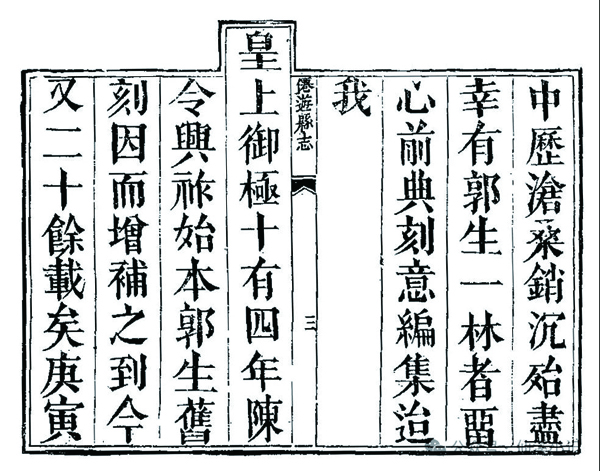 中歷滄桑銷沉殆盡
幸有郭生一林者畱
心前典刻意編集迨
我
僊遊縣志
三
皇上御極十有四年陳
令興祚始本郭生舊
刻因而增補之到今
又二十餘載矣庚寅